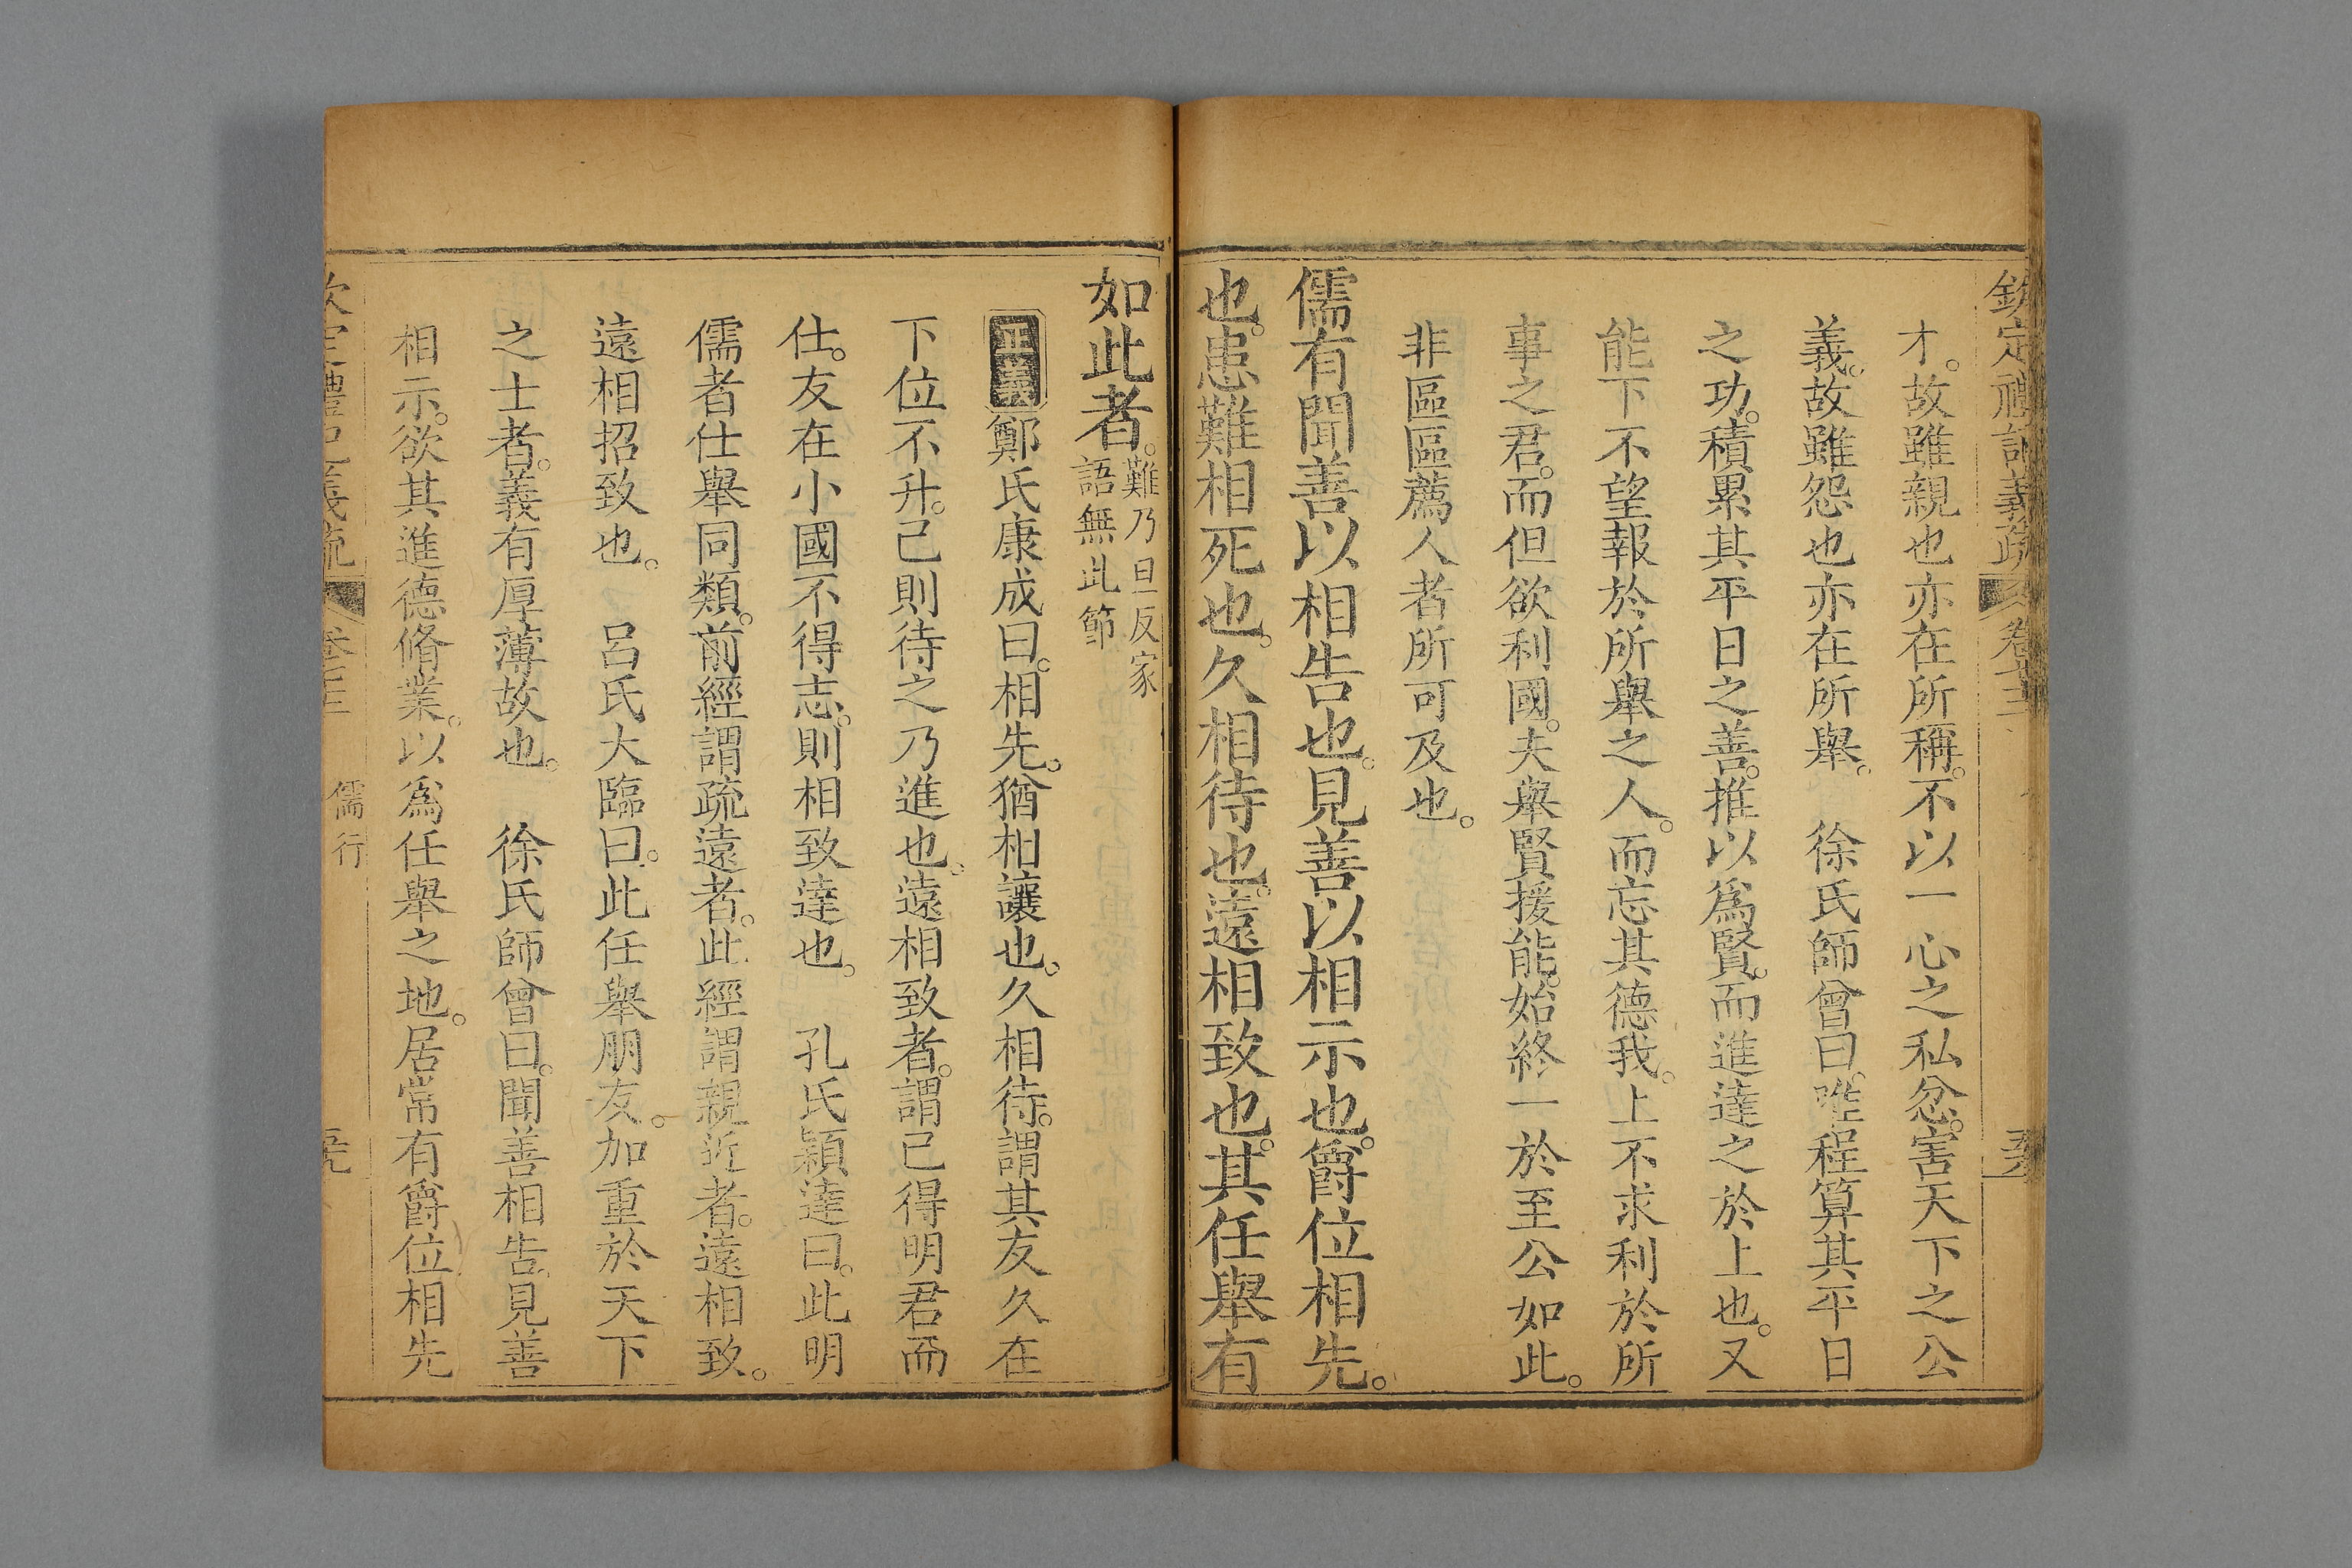 欽定禮記義疏 卷七十三
才。故雖親也亦在所稱。不以一心之私忿。害天下之公
義。故雖怨也亦在所舉。 徐氏師曾曰。程算其平日
之功。積累其平日之善。推以爲賢。而進達之於上也。又
能下不望報於所舉之人。而忘其德我。上不求利於所
事之君。而但欲利國。夫舉賢援能。始終一於至公如此。
非區區薦人者所可及也。
儒有聞善以相告也。見善以相示也。爵位相先。
也。患難相死也。久相待也。遠相致也。其任舉有
如此者。難乃旦反家
語無此節
正義 鄭氏康成曰。相先。猶相讓也。久相待。謂其友久在
下位不升。己則待之乃進也。遠相致者。謂己得明君而
仕。友在小國不得志。則相致達也。 孔氏穎達曰。此明
儒者仕舉同類。前經謂疏遠者。此經謂親近者。遠相致。
遠相招致也。 呂氏大臨曰。此任舉朋友。加重於天下
之士者。義有厚薄故也。 徐氏師曾曰。聞善相告。見善
相示。欲其進德脩業。以爲任舉之地。居常有爵位相先
儒行